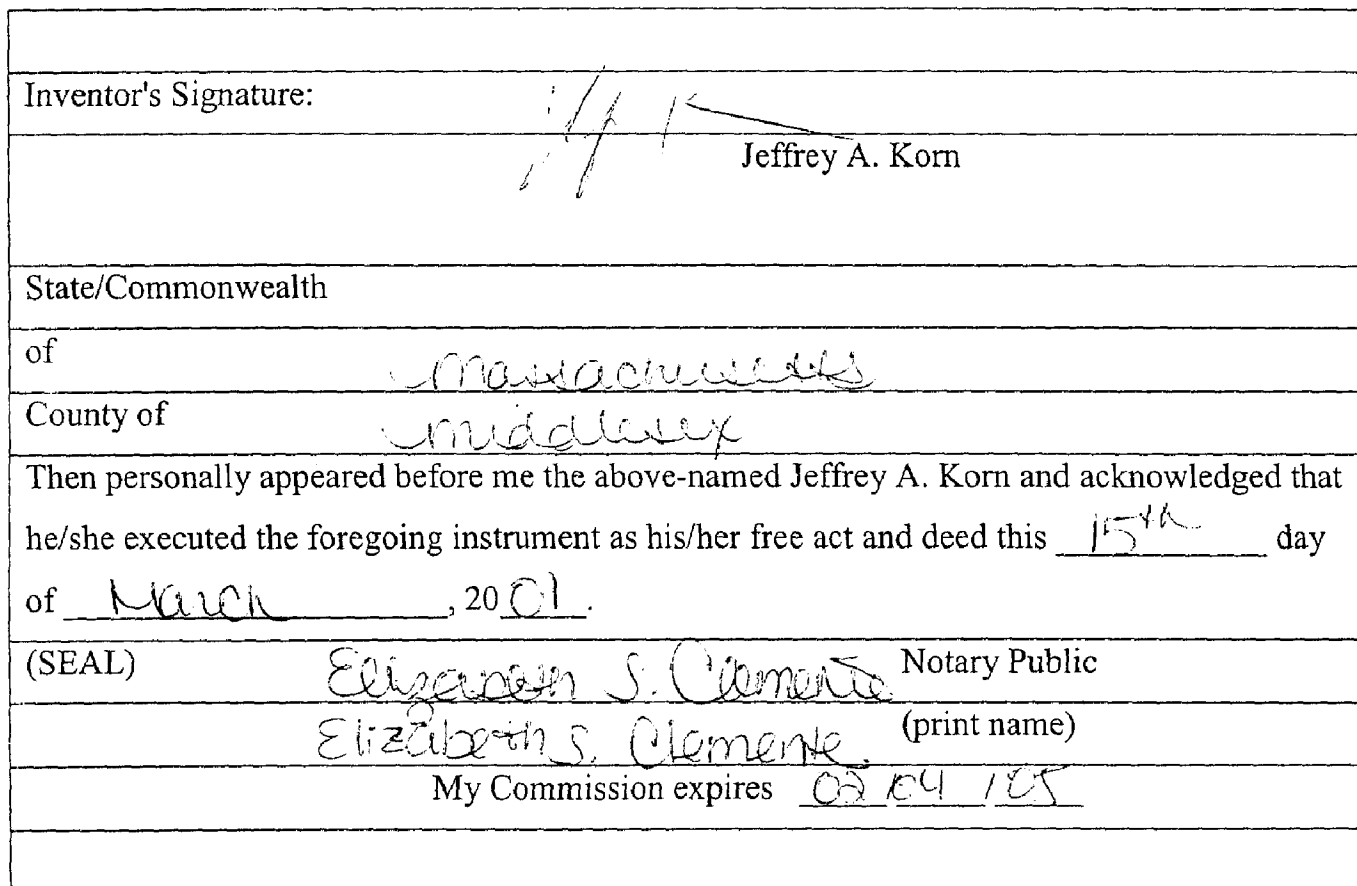 Inventor's Signature:
Jeffrey A. Korn
State/Commonwealth
of Massachusetts
County of Middlesex
Then personally appeared before me the above-named Jeffrey A. Korn and acknowledged that
he/she executed the foregoing instrument as his/her free act and deed this 15th day
of March, 2001.
(SEAL) Elizabeth S. Clemente Notary Public
Elizabeth S. Clemente (print name)
My Commission expires 02/04/05